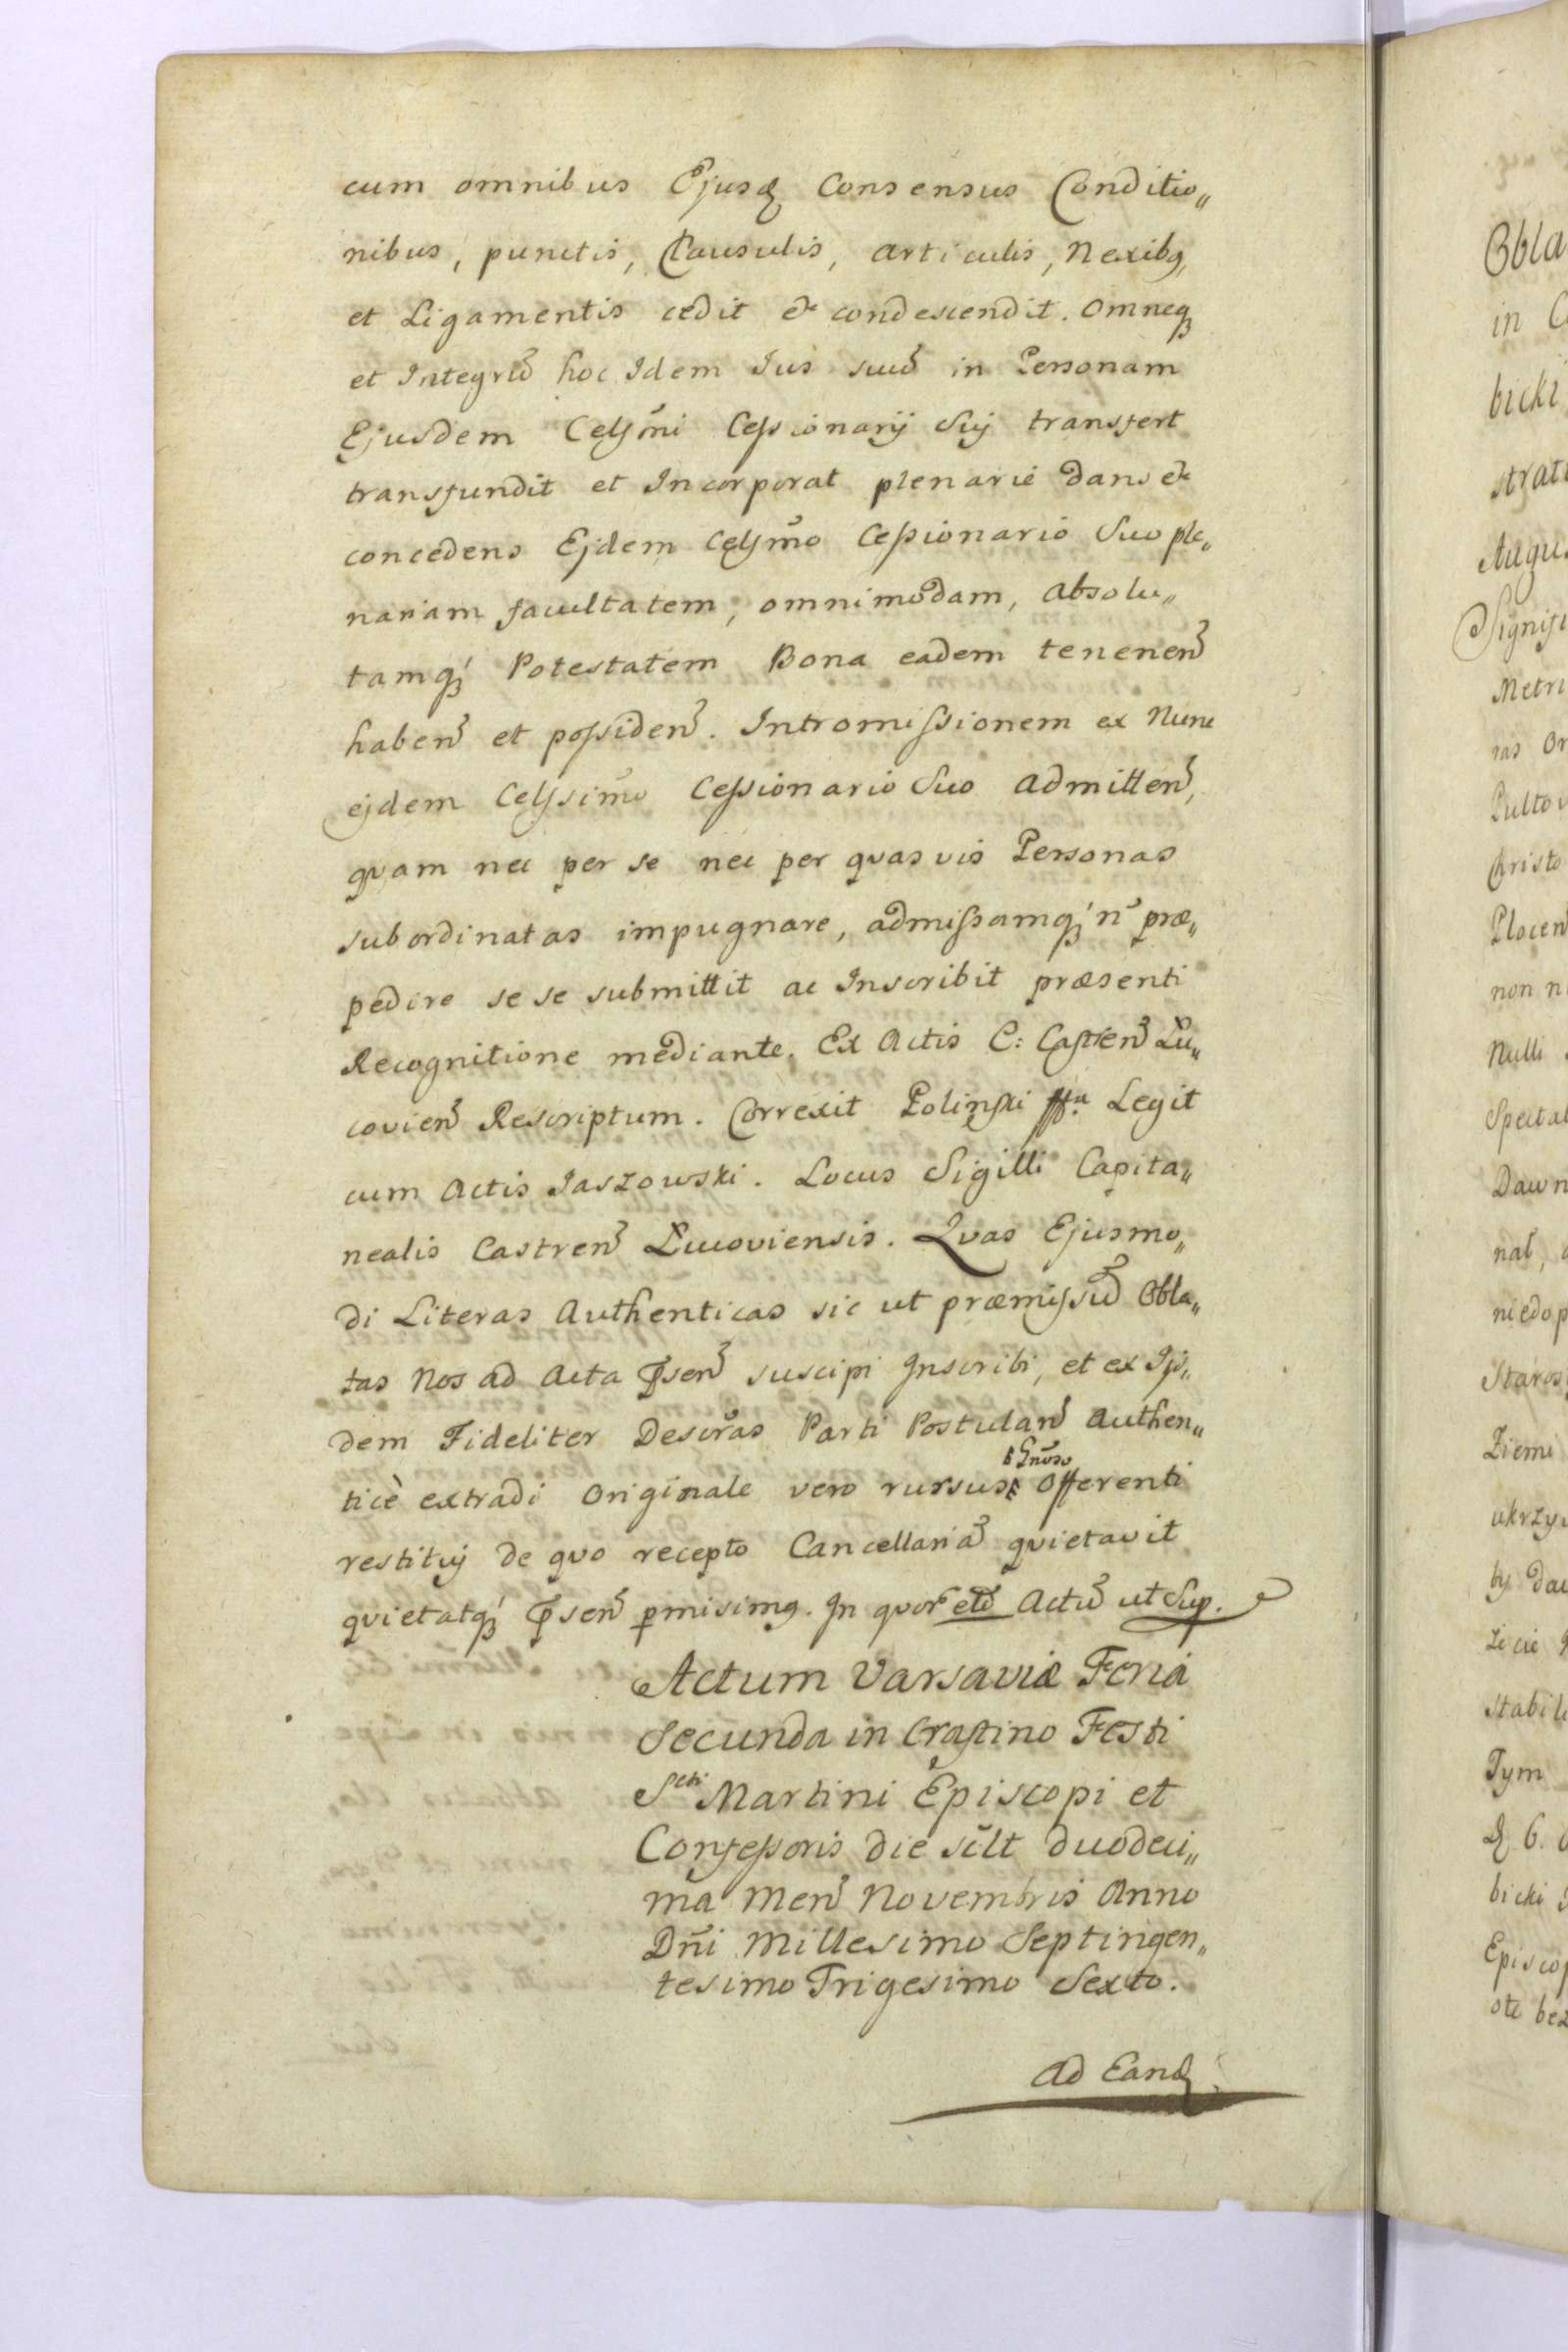 cum omnibus Ejusq Consensus Conditio„
nibus, punctis, Clausulis, articulis, Nexibq,
et Ligamentis cedit et condescendit. Omneq
et Integrũ hoc Idem Ius suũ in Personam
Ejusdem Celsm̃i Cessionarij Sui transfert
transfundit et Incorporat plenarie dans et
concedens Ejdem Celsm̃o Cessionario Suo ple„
nariam facultatem, omnimodam, Absolu„
tamq́ Potestatem Bona eadem tenenen̄
haben̄ et possiden̄. Intromissionem ex Nunc
ejdem Celssim̃o Cessionario Suo admitten̄,
quam nec per se nec per quasvis Personas
subordinatas impugnare, admissamq́ n̄ præ„
pedire sese submittit ac Inscribit præsenti
Recognitione mediante. Ex Actis C: Castren̄ Lu„
covien̄ Rescriptum. Correxit Polinski Legit
cum Actis Jaszowski. Locus Sigilli Capita„
nealis Castren̄ Lucoviensis. Quas Ejusmo„
di Literas Authenticas sic ut præmissũ Obla„
tas Nos ad Acta p̄sen̄ suscipi Inscribi, et ex Ijs„
dem Fideliter Descr̃as Parti Postulan̄ Authen„
ticè extradi Originale vero rursus Gnõso Offerenti
restituj de quo recepto Cancellariã quietavit
quietatq́ p̄sen̄ p̱misimq. In quor̄ etc̄ Actũ ut Sup.
Actum Varsaviæ Feriâ
Secunda in Crastino Festi
Scti Martini Episcopi et
Confessoris die scĩlt duodeci„
ma Men̄ Novembris Anno
Dñi Millesimo Septingen„
tesimo Trigesimo Sexto.
Ad Eandq
Obla
in C
bicki
strati
Augu
Signifi
Metri
ras Or
Pulto
Christo
Plocen
non n
Nulli
Specta
Dawn
nat,
niedop
Staros
Ziemi
ukrzy
by dau
Stabil
Tym
bicki
Episcop
ote bez